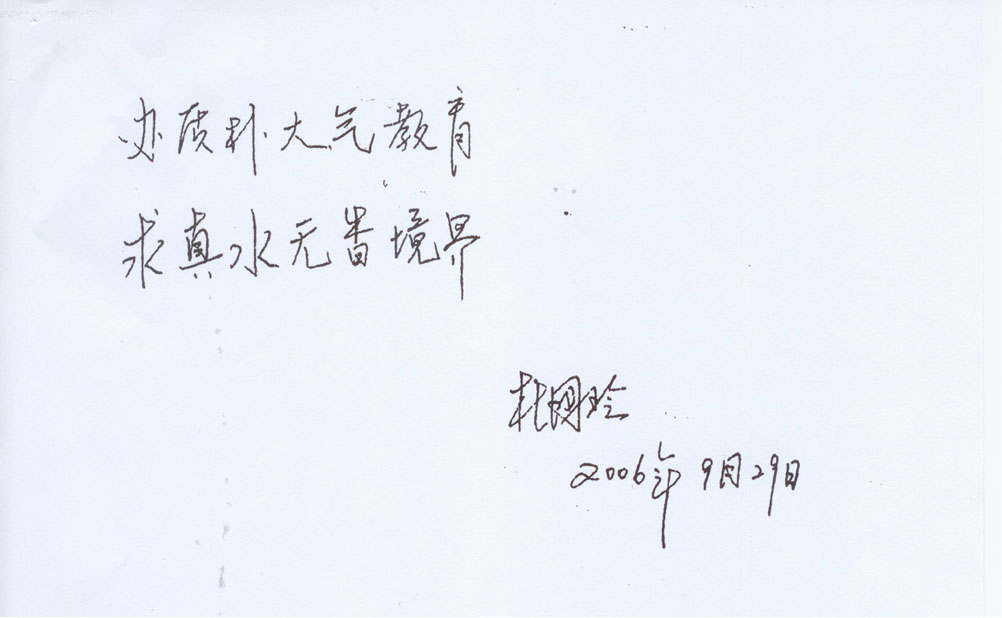 办质朴大气教育
求真水无香境界
杜
2006年9月29日